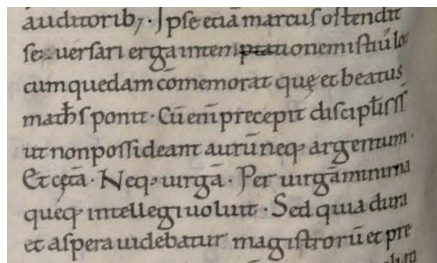 auditorib; · Ipse etiā marcus ostendit
se uersari erga intemptationem istiū loc
cum quedam cōmemorat quę et beatus
math̄s ponit · Cū em̄ precepit discipl̄is
ut non possideant aurū neq; argentum ·
Et cęta · Neq; uirgā · Per uirgā minima
queq; intellegi uoluit · Sed quia dura
et aspera uidebatur magistrorū et pre